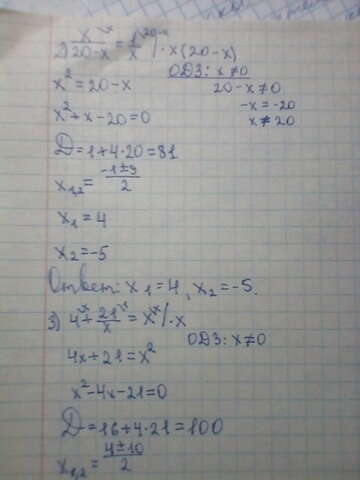 2) x/(20-x) = 1/x | · x(20-x)
ОДЗ: x≠0
x² = 20-x
20-x≠0
-x=-20
x²+x-20=0
x≠20
D=1+4·20=81
x₁,₂ = (-1±9)/2
x₁=4
x₂=-5
Ответ: x₁=4, x₂=-5.
3) 4 + 21/x = x | · x
ОДЗ: x≠0
4x+21=x²
x²-4x-21=0
D=16+4·21=100
x₁,₂ = (4±10)/2